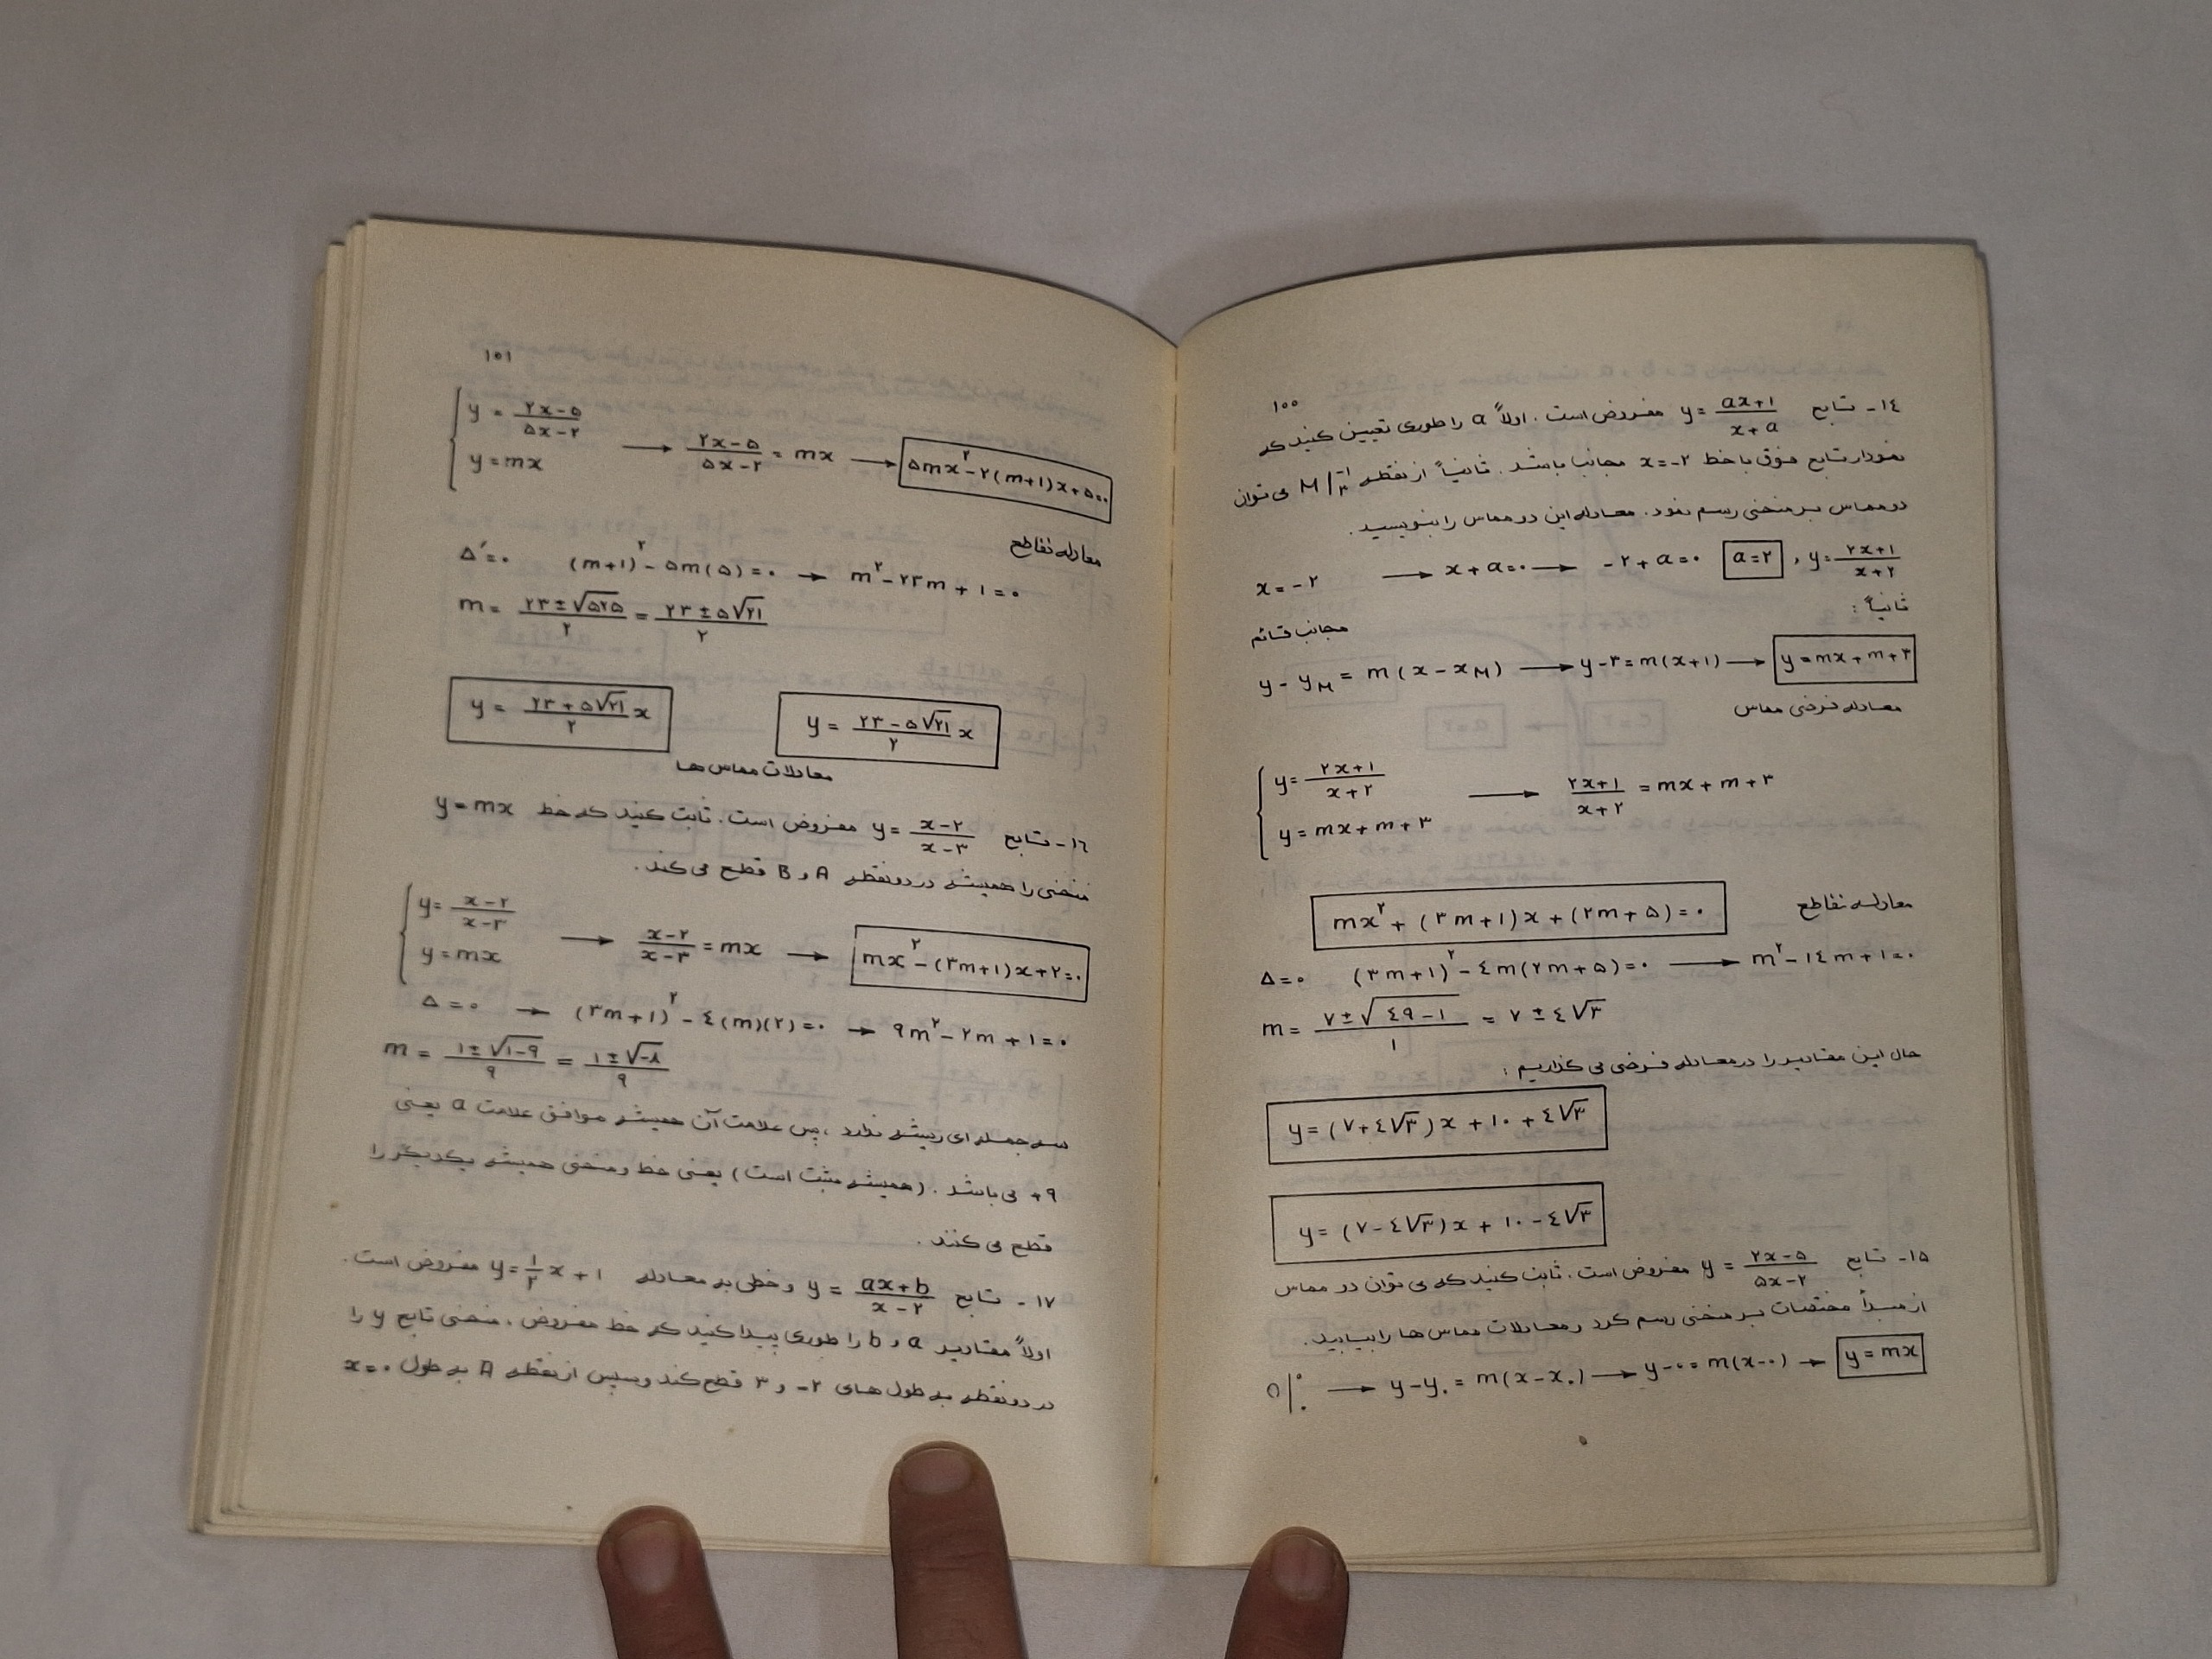 ۱۰۰
۱٤- تابع y = (ax+۱)/(x+a) مفروض است. اولاً a را طوری تعیین کنید که
نمودار تابع فوق با خط x=-۲ مجانب باشد. ثانیاً از نقطه M|-۱ ۳ می توان
دو مماس بر منحنی رسم نمود. معادله این دو مماس را بنویسید.
x=-۲ → x+a=۰ → -۲+a=۰ a=۲ , y = (۲x+۱)/(x+۲)
ثانیاً:
مجانب قائم
y-yM = m(x-xM) → y-۳=m(x+۱) → y=mx+m+۳
معادله فرضی مماس
{ y = (۲x+۱)/(x+۲)
y=mx+m+۳ → (۲x+۱)/(x+۲) = mx+m+۳
mx²+(۳m+۱)x+(۲m+۵)=۰ معادله تقاطع
Δ=۰ (۳m+۱)²-٤m(۲m+۵)=۰ → m²-۱٤m+۱=۰
m = (۷±√(٤۹-۱))/۱ = ۷±٤√۳
حال این مقادیر را در معادله فرضی می گذاریم:
y=(۷+٤√۳)x+۱۰+٤√۳
y=(۷-٤√۳)x+۱۰-٤√۳
۱۵- تابع y = (۲x-۵)/(۵x-۲) مفروض است. ثابت کنید که می توان دو مماس
از مبدأ مختصات بر منحنی رسم کرد و معادلات مماس ها را بیابید.
O|۰ ۰ → y-y۰ = m(x-x۰) → y-۰=m(x-۰) → y=mx
۱۰۱
{ y = (۲x-۵)/(۵x-۲)
y=mx → (۲x-۵)/(۵x-۲) = mx → ۵mx²-۲(m+۱)x+۵=۰
معادله تقاطع
Δ′=۰ (m+۱)²-۵m(۵)=۰ → m²-۲۳m+۱=۰
m = (۲۳±√۵۲۵)/۲ = (۲۳±۵√۲۱)/۲
y = (۲۳+۵√۲۱)/۲ x y = (۲۳-۵√۲۱)/۲ x
معادلات مماس ها
۱٦- تابع y = (x-۲)/(x-۳) مفروض است. ثابت کنید که خط y=mx
منحنی را همیشه در دو نقطه A و B قطع می کند.
{ y = (x-۲)/(x-۳)
y=mx → (x-۲)/(x-۳) = mx → mx²-(۳m+۱)x+۲=۰
Δ=۰ → (۳m+۱)²-٤(m)(۲)=۰ → ۹m²-۲m+۱=۰
m = (۱±√(۱-۹))/۹ = (۱±√-۸)/۹
سه جمله ای ریشه ندارد ، پس علامت آن همیشه موافق علامت a یعنی
+۹ می باشد. (همیشه مثبت است) یعنی خط و منحنی همیشه یکدیگر را
قطع می کنند.
۱۷- تابع y = (ax+b)/(x-۲) و خطی به معادله y = ۱/۲ x+۱ مفروض است.
اولاً مقادیر a و b را طوری پیدا کنید که خط مفروض ، منحنی تابع y را
در دو نقطه به طول های -۲ و ۳ قطع کند و سپس از نقطه A به طول x=۰